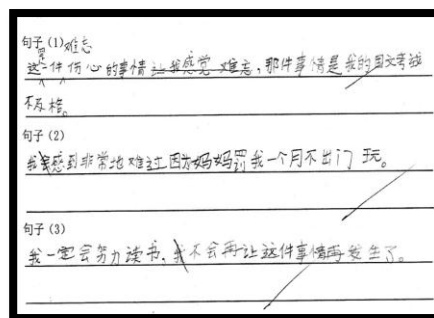 句子 (1) 难忘
这一件伤心的事情让我感觉难忘,那件事情是我的国文考试
不及格。
句子 (2)
我感到非常地难过因为妈妈罚我一个月不出门玩。
句子 (3)
我一定会努力读书,我不会再让这件事情再发生了。